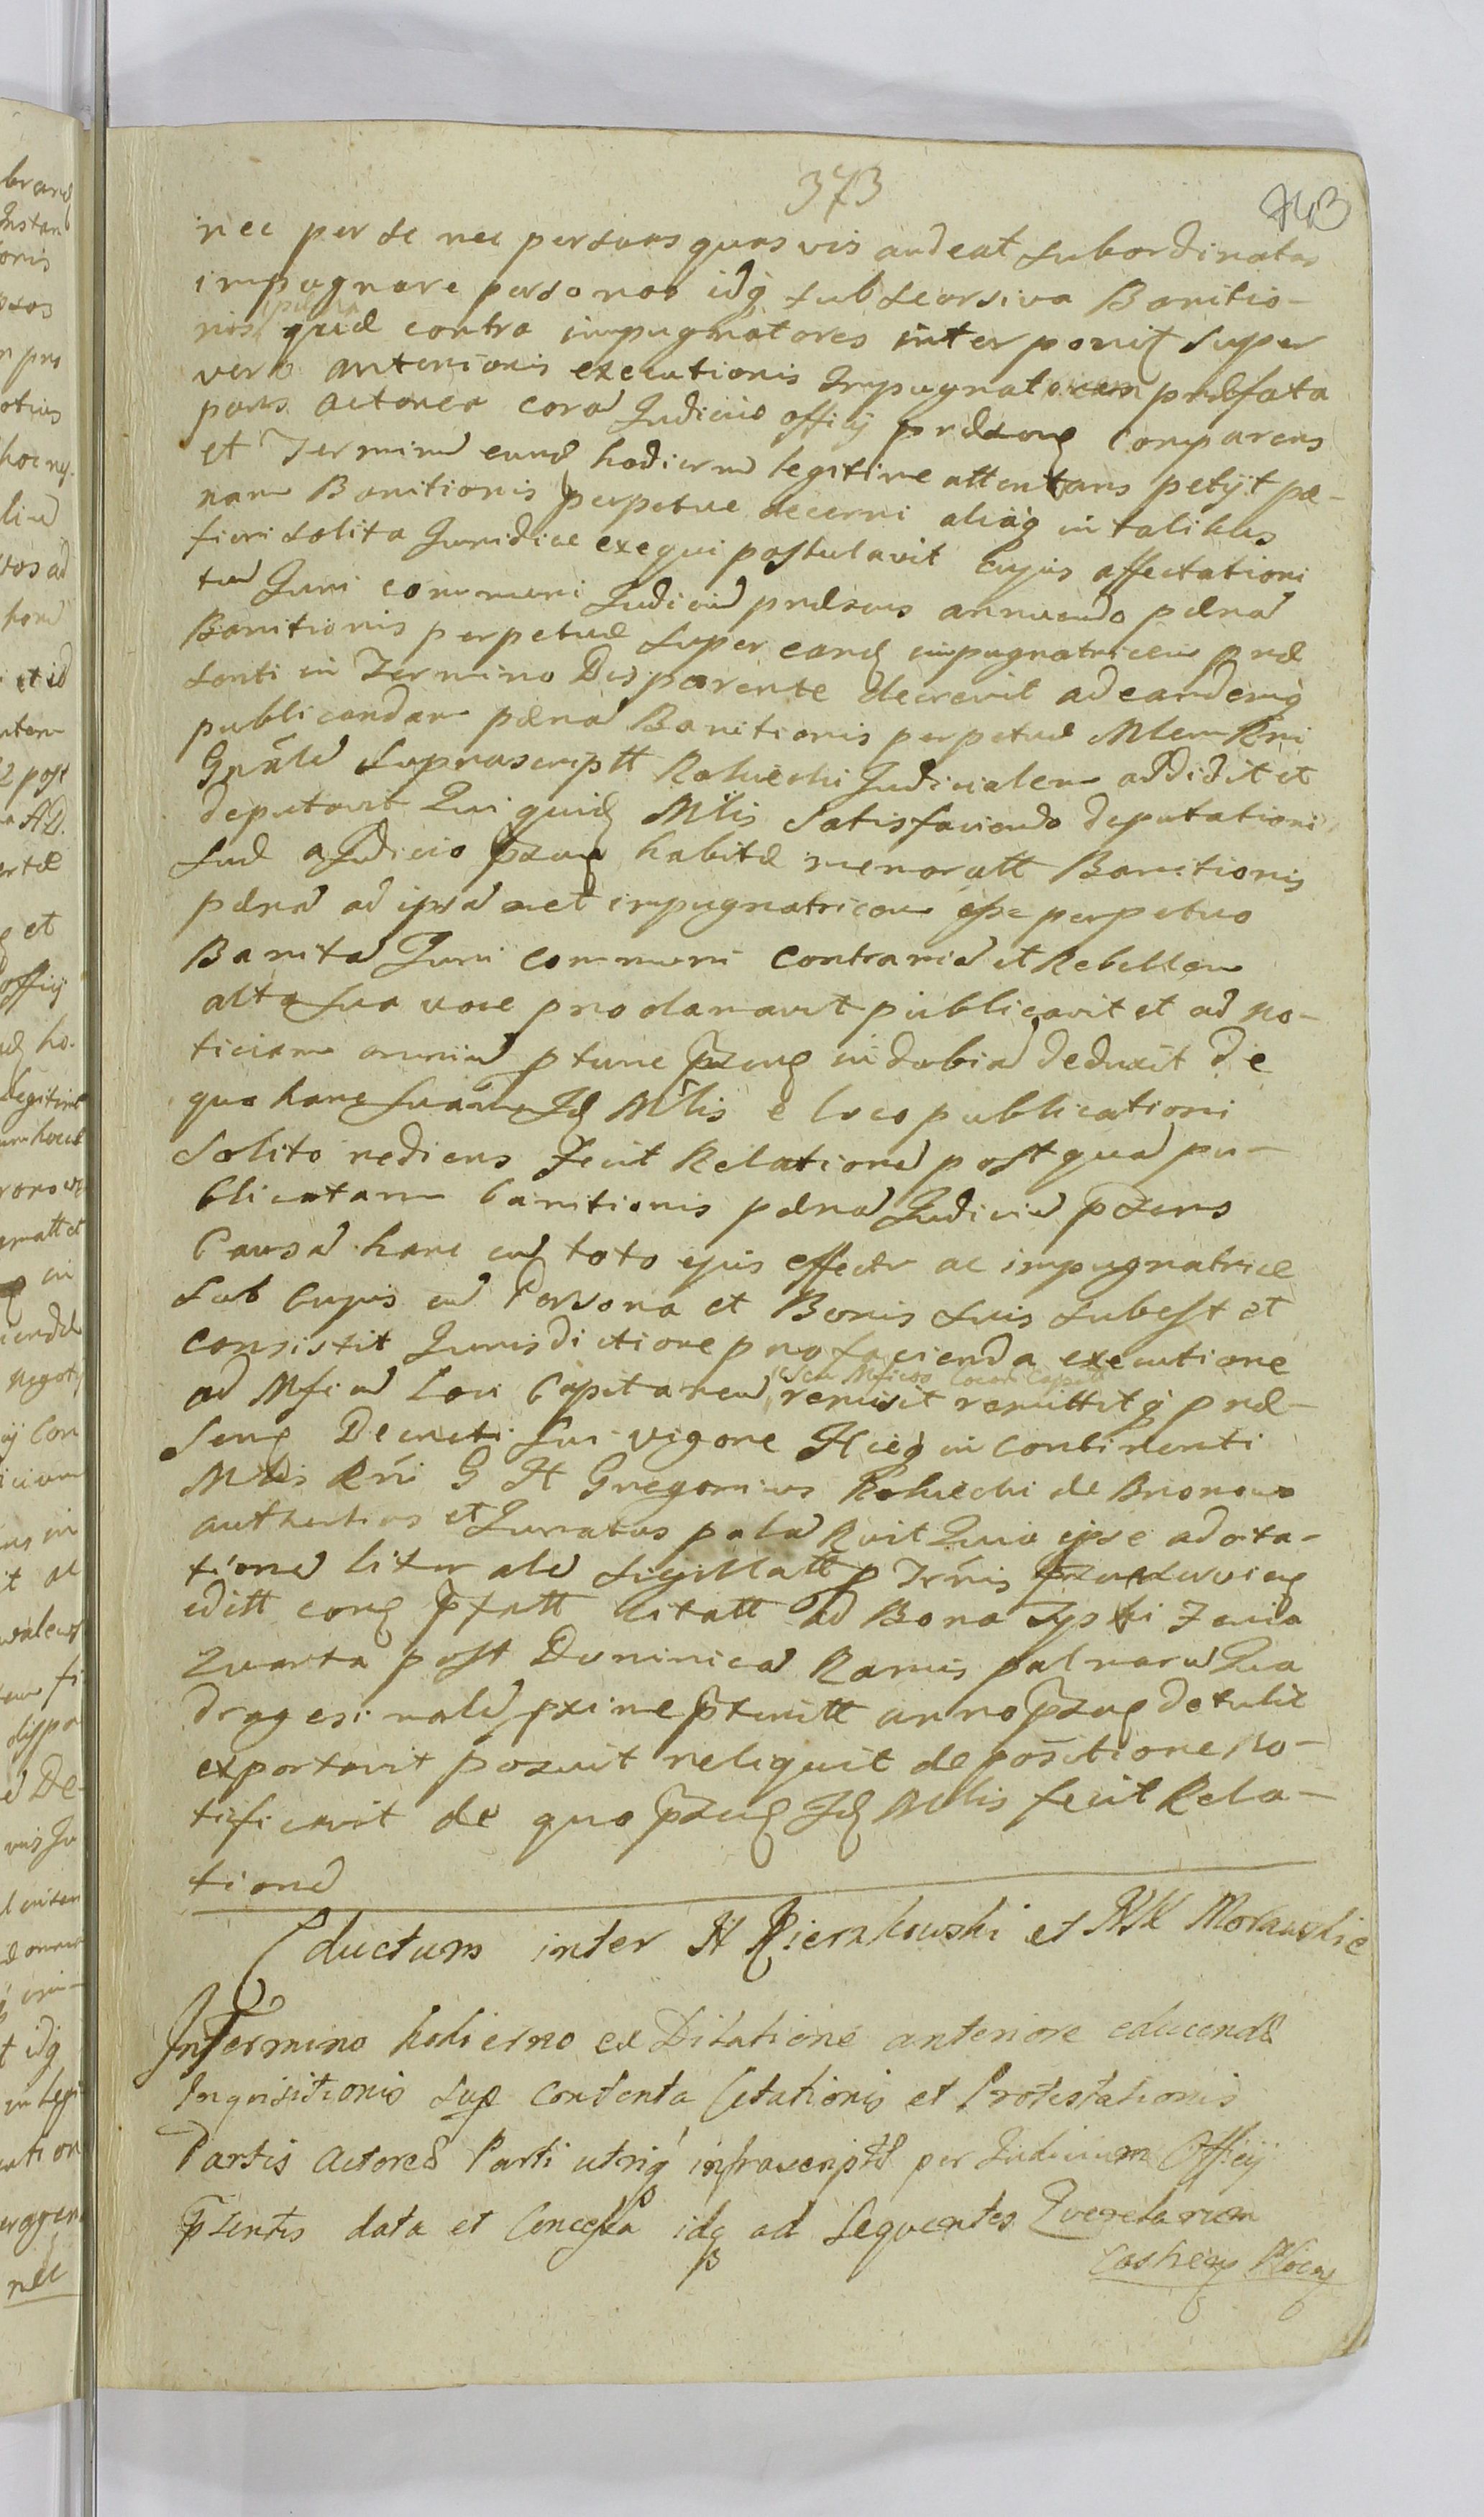 373
743
nec per se nec per suas quas vis audeat subordinatas
impugnare personas idq sub seorsiva Banitio-
nis pœna quæ contra impugnatores interponit super
vero anterioris executionis Impugnatricem præfata
pars actorea corā Judicio officij præsenti comparens
et Terminū eund hodiernū legitime attentans petijt pœ-
nam Banitionis perpetuæ decerni aliaq in talibus
fieri solita Juridice exequi postulavit Cujus affectationi
tum Juri communi Judiciū præsens annuendo pœnā
Banitionis perpetuæ super eand impugnatricem præ
senti in Termino Disparente decrevit ad eandemq
publicandam pœnā Banitionis perpetuæ Mlem Rni
Gnālē suprascriptt Judicialem addidit et
deputavit Qui quid Mlis satisfaciendo deputationi
suæ a Judicio præng habitæ memoratt Banitionis
pœnā ad ipsā met impugnatricem esse perpetuo
Banitā Juri communi contrariā et Rebellem
alta sua voce proclamavit publicavit et ad no-
ticiam omniū ptunc pzng indubiā deduxit de
quo hanc suām Id Mlis e loco publicationi
solito rediens Fecit Relationē postquā pu-
blicatam banitionis pœnā Judiciū pzens
Causā hanc cū toto ejus effectu ac impugnatrice
sub cujus cū Persona et Bonis suis subest et
consistit Jurisdictione pro facienda executione
ad Mficū Loci Capitaneū seu Mficos Locor Capit remisit remittitq præ-
seng Decreti sui vigore Hicq in continenti
Mlis Rni G H Gregorius de
authenticus et Juratus palā Rcvit Quia ipse ad cita-
tionē literalē sigillatt
editt cong pfatt citatt ad Bona Feria
Quarta post Dominicā Ramis palmarū Qua
dragesimalē pxime pteritt anno pzng detulit
exportavit posuit reliquit depositione no-
tificavit de quo pzng Id Mlis fecit Rela-
tionē
Eductum inter H Pienkowski et Morawskie
In Termino hodierno ex Dilatione anteriore educendæ
Inquisitionis sup contenta Citationis et Protestationis
Partis actoreæ Parti utriq infrascriptæ per Judicium Officij
pzentis data et Concessa idq ad sequentes Querelarum